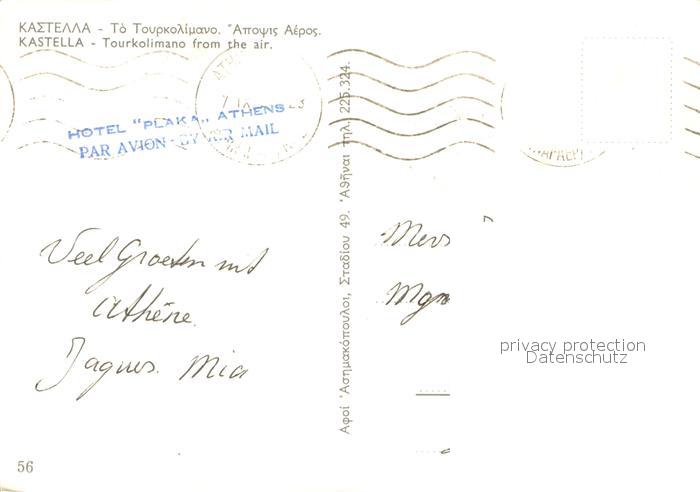 ΚΑΣΤΕΛΛΑ - Τὸ Τουρκολίμανο. Ἄποψις Αέρος.
KASTELLA - Tourkolimano from the air.
HOTEL "PLAKA" ATHENS
PAR AVION - BY AIR MAIL
Veel Groeten uit
Athéne.
Jaques. Mia
Ἀφοί Ἀσημακόπουλοι, Σταδίου 49. Ἀθῆναι τηλ. 225.324.
privacy protection
Datenschutz
56